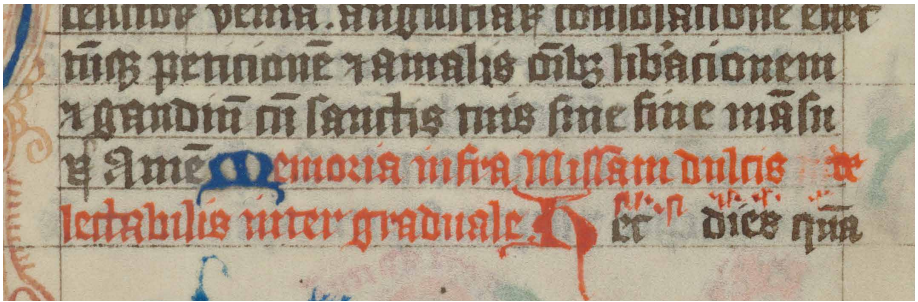 venia. angustiaꝝ consolacione effec
tūqꝫ peticionē ⁊ a malis oībꝫ libāacionem
⁊ gaudiū cū sanctis tuis sine fine māsu
ꝝ Amē Memoria infra Missam dulcis de
lectabilis inter graduale Hec dies quā